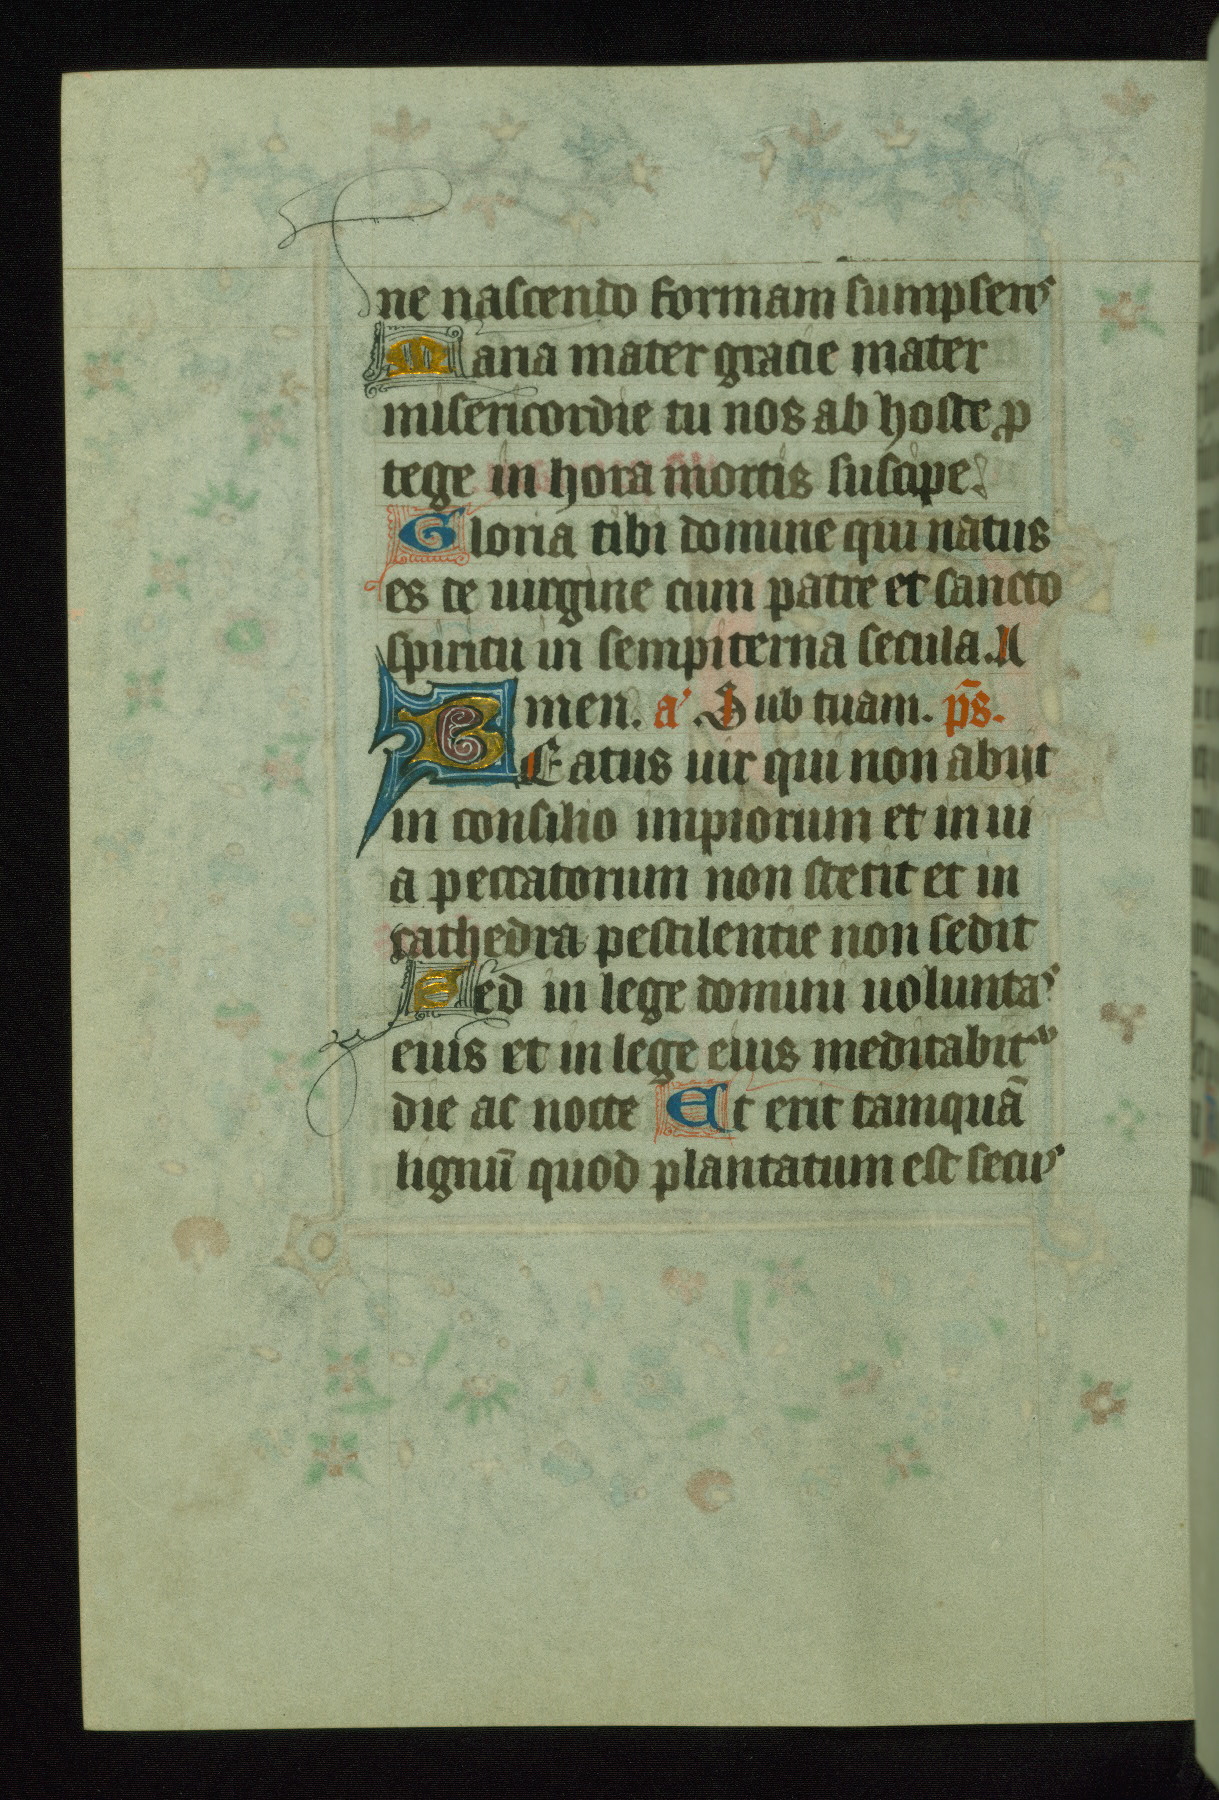 ne nascendo formam sumpseris
Maria mater gracie mater
misericordie tu nos ab hoste p
tege in hora mortis suscipe.
Gloria tibi domine qui natus
es de uirgine cum patre et sancto
spiritu in sempiterna secula. A
men. a' Sub tuam. p̄s.
BEatus uir qui non abijt
in consilio impiorum et in ui
a peccatorum non stetit et in
cathedra pestilentie non sedit
Sed in lege domini uoluntas
eius et in lege eius meditabitᵘʳ
die ac nocte Et erit tamquā
lignū quod plantatum est secus